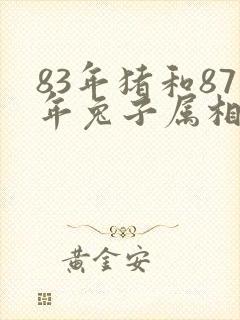 83年猪和87
年兔子属相
黄金安